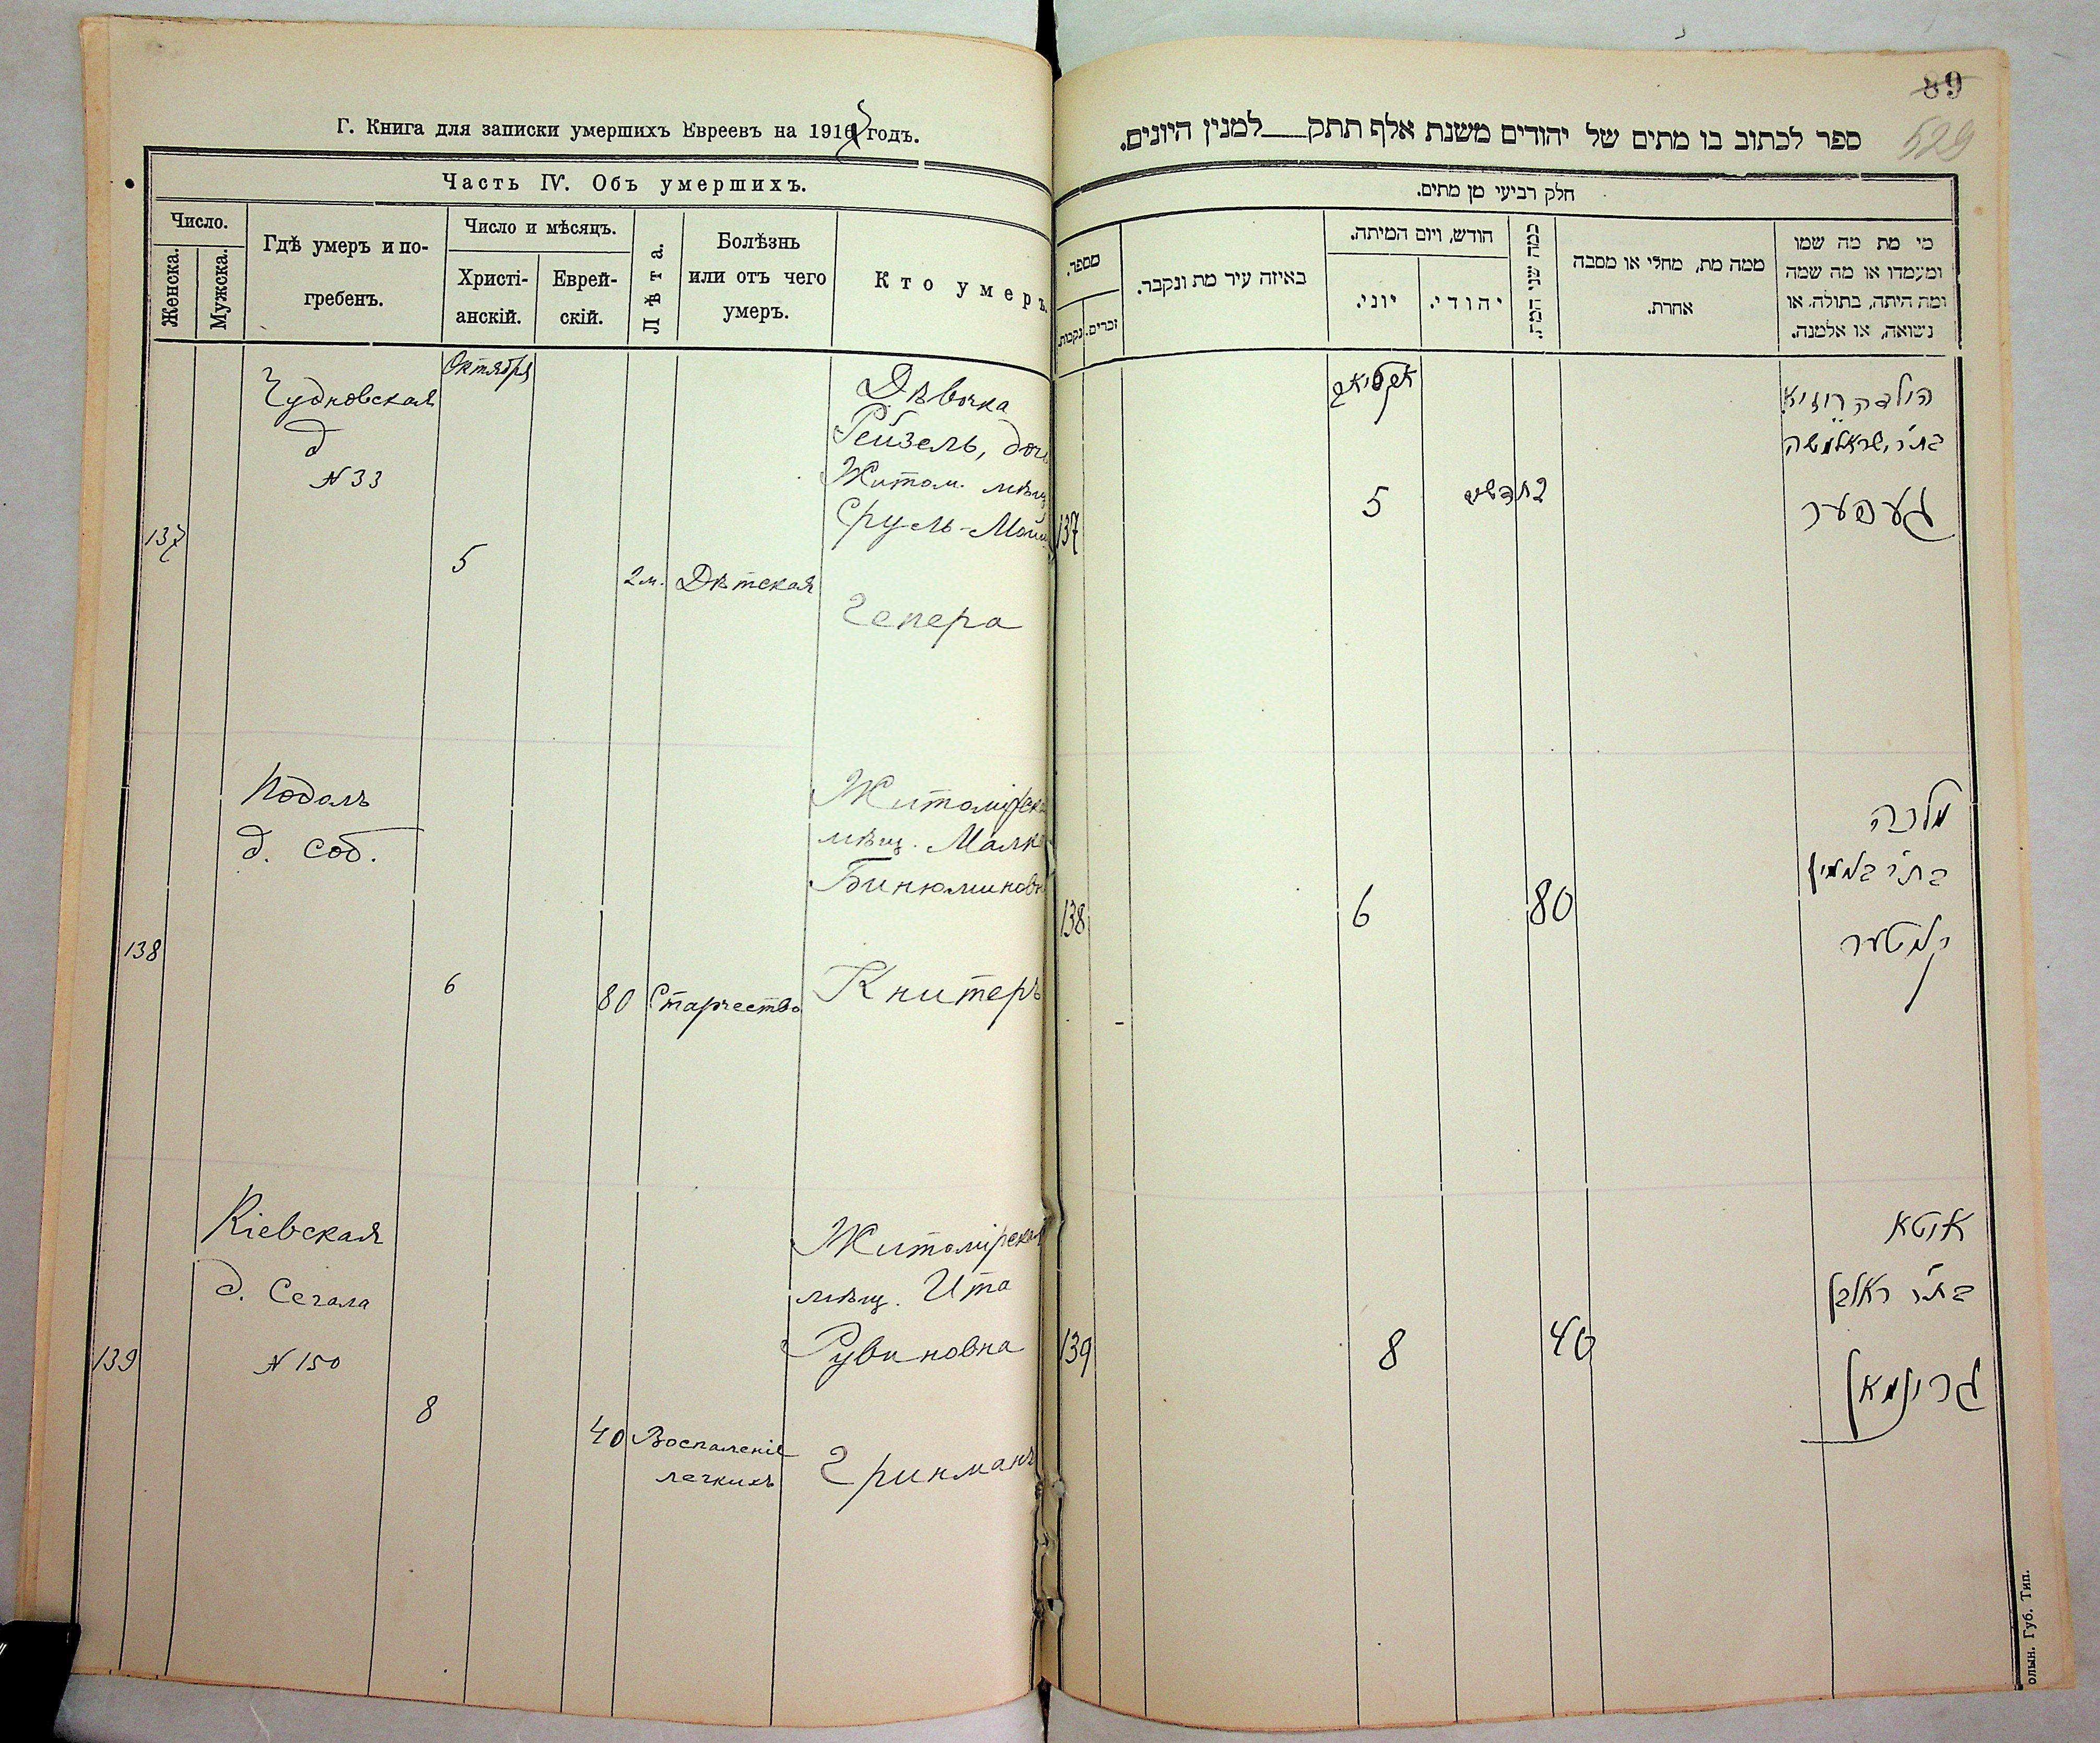 Г. Книга для записки умершихъ Евреевъ на 191 годъ.
Часть IV. Объ умершихъ.
Число.
Женска.
Мужска.
Гдѣ умеръ и по-
гребенъ.
Число и мѣсяцъ.
Христі-
анскій.
Еврей-
скій.
Лѣта.
Болѣзнь
или отъ чего
умеръ.
Кто умеръ.
Октября
137
Чудновская
д
№ 33
5
2 м.
Дѣтская
Дѣвочка
Рейзель, доч
Житом. мѣщ
Сруль-Мош
Гепера
138
Подолъ
д. соб.
6
80
Старчество
Житомірская
мѣщ. Малка
Бинюминовн
Книтеръ
139
Кіевская
д. Сегала
№ 150
8
40
Воспаленіе
легкихъ
Житомірская
мѣщ. Ита
Рувиновна
Гринманъ
89
529
ספר לכתוב בו מתים של יהודים משנת אלף תתק למנין היונים.
חלק רביעי מן מתים.
מספר.
נקבות.
זכרים.
באיזה עיר מת ונקבר.
חודש, ויום המיתה.
יוני.
יהודי.
כמה שני המת.
ממה מת, מחלי או מסבה
אחרת.
מי מת מה שמו
ומעמדו או מה שמה
ומת היתה, בתולה, או
נשואה, או אלמנה.
137
5
2 חדשים
הילדה רייזיא
בת ר' ישראל משה
געפער
138
6
80
מלכה
בת ר' בנימין
קניטער
139
8
40
איטא
בת ר' ראובן
גרינמאן
олын. Губ. Тип.